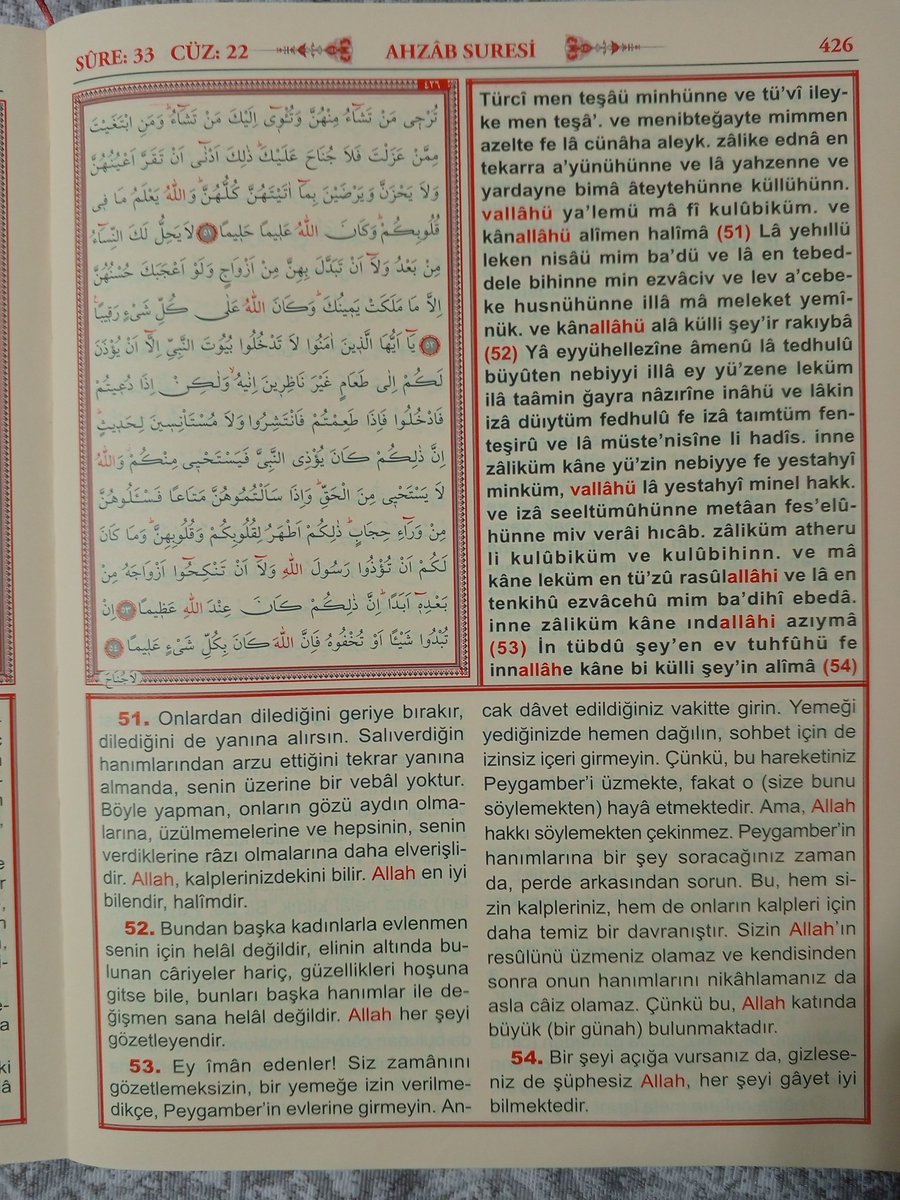 SÛRE: 33 CÜZ: 22
AHZÂB SURESİ
426
٤٢٦
تُرْج۪ى مَنْ تَشَٓاءُ مِنْهُنَّ وَتُـْٔو۪ٓى اِلَيْكَ مَنْ تَشَٓاءُ وَمَنِ ابْتَغَيْتَ
مِمَّنْ عَزَلْتَ فَلَا جُنَاحَ عَلَيْكَ ذٰلِكَ اَدْنٰٓى اَنْ تَقَرَّ اَعْيُنُهُنَّ
وَلَا يَحْزَنَّ وَيَرْضَيْنَ بِمَٓا اٰتَيْتَهُنَّ كُلُّهُنَّ وَاللّٰهُ يَعْلَمُ مَا ف۪ى
قُلُوبِكُمْ وَكَانَ اللّٰهُ عَل۪يمًا حَل۪يمًا ﴿٥١﴾ لَا يَحِلُّ لَكَ النِّسَٓاءُ
مِنْ بَعْدُ وَلَٓا اَنْ تَبَدَّلَ بِهِنَّ مِنْ اَزْوَاجٍ وَلَوْ اَعْجَبَكَ حُسْنُهُنَّ
اِلَّا مَا مَلَكَتْ يَم۪ينُكَ وَكَانَ اللّٰهُ عَلٰى كُلِّ شَىْءٍ رَق۪يبًا
﴿٥٢﴾ يَٓا اَيُّهَا الَّذ۪ينَ اٰمَنُوا لَا تَدْخُلُوا بُيُوتَ النَّبِىِّ اِلَّٓا اَنْ يُؤْذَنَ
لَكُمْ اِلٰى طَعَامٍ غَيْرَ نَاظِر۪ينَ اِنٰيهُ وَلٰكِنْ اِذَا دُع۪يتُمْ
فَادْخُلُوا فَاِذَا طَعِمْتُمْ فَانْتَشِرُوا وَلَا مُسْتَأْنِس۪ينَ لِحَد۪يثٍ
اِنَّ ذٰلِكُمْ كَانَ يُؤْذِى النَّبِىَّ فَيَسْتَحْي۪ى مِنْكُمْ وَاللّٰهُ
لَا يَسْتَحْي۪ى مِنَ الْحَقِّ وَاِذَا سَاَلْتُمُوهُنَّ مَتَاعًا فَسْـَٔلُوهُنَّ
مِنْ وَرَٓاءِ حِجَابٍ ذٰلِكُمْ اَطْهَرُ لِقُلُوبِكُمْ وَقُلُوبِهِنَّ وَمَا كَانَ
لَكُمْ اَنْ تُؤْذُوا رَسُولَ اللّٰهِ وَلَٓا اَنْ تَنْكِحُٓوا اَزْوَاجَهُ مِنْ
بَعْدِه۪ٓ اَبَدًا اِنَّ ذٰلِكُمْ كَانَ عِنْدَ اللّٰهِ عَظ۪يمًا ﴿٥٣﴾ اِنْ
تُبْدُوا شَيْـًٔا اَوْ تُخْفُوهُ فَاِنَّ اللّٰهَ كَانَ بِكُلِّ شَىْءٍ عَل۪يمًا ﴿٥٤﴾
لَاجُنَاحَ
Türcî men teşâü minhünne ve tü’vî iley-
ke men teşâ’. ve menibteğayte mimmen
azelte fe lâ cünâha aleyk. zâlike ednâ en
tekarra a’yünühünne ve lâ yahzenne ve
yardayne bimâ âteytehünne küllühünn.
vallâhü ya’lemü mâ fî kulûbiküm. ve
kânallâhü alîmen halîmâ (51) Lâ yehıllü
leken nisâü mim ba’dü ve lâ en tebed-
dele bihinne min ezvâciv ve lev a’cebe-
ke husnühünne illâ mâ meleket yemî-
nük. ve kânallâhü alâ külli şey’ir rakıybâ
(52) Yâ eyyühellezîne âmenû lâ tedhulû
büyûten nebiyyi illâ ey yü’zene leküm
ilâ taâmin ğayra nâzırîne inâhü ve lâkin
izâ düıytüm fedhulû fe izâ taımtüm fen-
teşirû ve lâ müste’nisîne li hadîs. inne
zâliküm kâne yü’zin nebiyye fe yestahyî
minküm, vallâhü lâ yestahyî minel hakk.
ve izâ seeltümûhünne metâan fes’elû-
hünne miv verâi hıcâb. zâliküm atheru
li kulûbiküm ve kulûbihinn. ve mâ
kâne leküm en tü’zû rasûlallâhi ve lâ en
tenkihû ezvâcehû mim ba’dihî ebedâ.
inne zâliküm kâne ındallâhi azıymâ
(53) İn tübdû şey’en ev tuhfûhü fe
innallâhe kâne bi külli şey’in alîmâ (54)
51. Onlardan dilediğini geriye bırakır,
dilediğini de yanına alırsın. Salıverdiğin
hanımlarından arzu ettiğini tekrar yanına
almanda, senin üzerine bir vebâl yoktur.
Böyle yapman, onların gözü aydın olma-
larına, üzülmemelerine ve hepsinin, senin
verdiklerine râzı olmalarına daha elverişli-
dir. Allah, kalplerinizdekini bilir. Allah en iyi
bilendir, halîmdir.
52. Bundan başka kadınlarla evlenmen
senin için helâl değildir, elinin altında bu-
lunan câriyeler hariç, güzellikleri hoşuna
gitse bile, bunları başka hanımlar ile de-
ğişmen sana helâl değildir. Allah her şeyi
gözetleyendir.
53. Ey îmân edenler! Siz zamânını
gözetlemeksizin, bir yemeğe izin verilme-
dikçe, Peygamber’in evlerine girmeyin. An-
cak dâvet edildiğiniz vakitte girin. Yemeği
yediğinizde hemen dağılın, sohbet için de
izinsiz içeri girmeyin. Çünkü, bu hareketiniz
Peygamber’i üzmekte, fakat o (size bunu
söylemekten) hayâ etmektedir. Ama, Allah
hakkı söylemekten çekinmez. Peygamber’in
hanımlarına bir şey soracağınız zaman
da, perde arkasından sorun. Bu, hem si-
zin kalpleriniz, hem de onların kalpleri için
daha temiz bir davranıştır. Sizin Allah’ın
resûlünü üzmeniz olamaz ve kendisinden
sonra onun hanımlarını nikâhlamanız da
asla câiz olamaz. Çünkü bu, Allah katında
büyük (bir günah) bulunmaktadır.
54. Bir şeyi açığa vursanız da, gizlese-
niz de şüphesiz Allah, her şeyi gâyet iyi
bilmektedir.